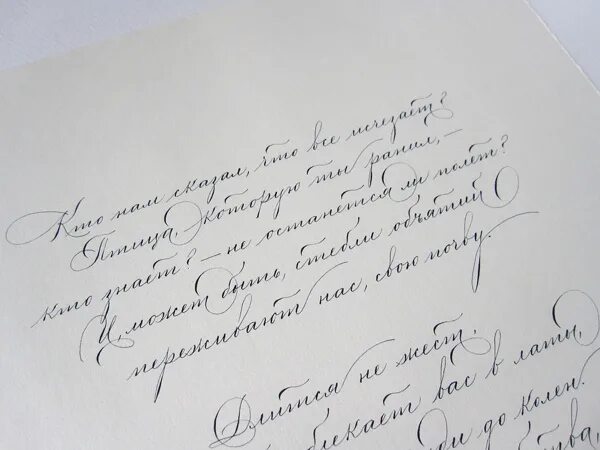 Кто нам сказал, что все исчезает?
Птица, которую ты ранил, –
кто знает? – не останется ли полёт?
И, может быть, стебли объятий
переживают нас, свою почву.
Длится не жест,
вас в латы,
до колен.